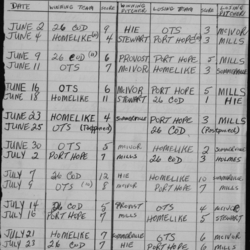 DATE WINNING TEAM SCORE WINNING PITCHER LOSING TEAM SCORE LOSING PITCHER
JUNE 2 26 COD 9 HIE OTS 3 McIVOR
JUNE 4 HOMELIKE 4 STEWART PORT HOPE 3 MILLS
JUNE 9 26 COD 6 PROVOST PORT HOPE 5 MILLS
JUNE 11 OTS 7 McIVOR HOMELIKE 3 SOMMERVILLE
JUNE 16 OTS 6 McIVOR PORT HOPE 5 MILLS
JUNE 18 HOMELIKE 11 STEWART 26 COD 1 HIE
JUNE 23 HOMELIKE 4 SOMMERVILLE PORT HOPE 3 MILLS
JUNE 25 OTS 26 COD
JUNE 30 OTS 5 McIVOR HOMELIKE 2 SOMMERVILLE
JULY 2 PORT HOPE 7 MILLS 26 COD 3 HOLMES
JULY 7 26 COD 12 HIE HOMELIKE 10 SOMMERVILLE
JULY 9 OTS 8 McIVOR PORT HOPE 7 MILLS
JULY 14 26 COD 5 PROVOST OTS 4 McIVOR
JULY 16 PORT HOPE 7 MILLS HOMELIKE 5 STEWART
JULY 21 HOMELIKE 7 SOMMERVILLE OTS 6 McIVOR
JULY 23 26 COD 7 HIE PORT HOPE 4 MILLS